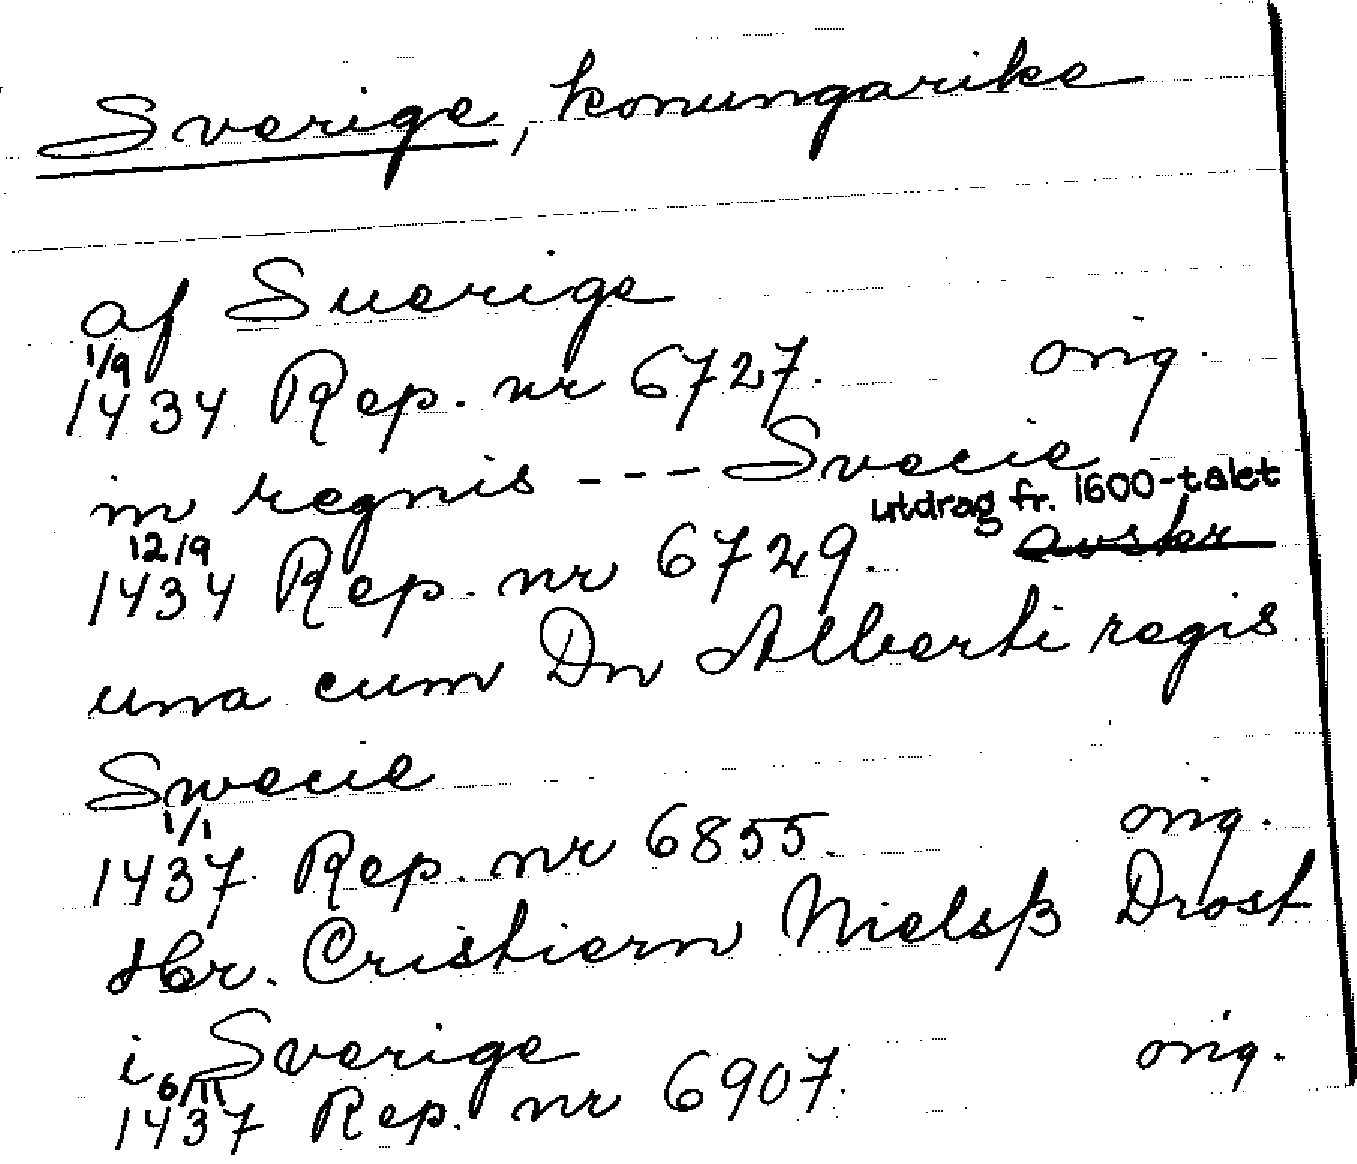 Sverige, konungarike
af Suerige
1/9
1434 Rep. nr 6727. orig.
in regnis --- Svecie
utdrag fr. 1600-talet
12/9
1434 Rep. nr 6729. avskr
una cum Dn Alberti regis
Swecie
1/1
1437 Rep. nr 6855. orig.
Hr. Cristiern Nielsß Drost
i Sverige
6/11
1437 Rep. nr 6907. orig.